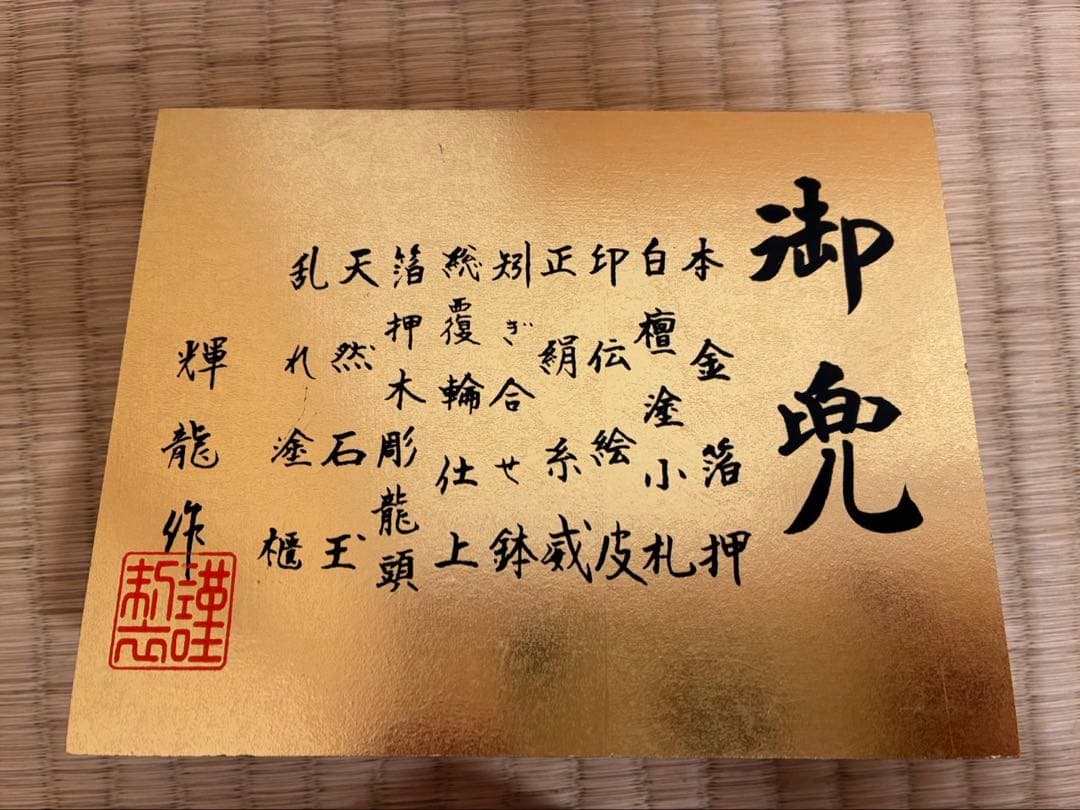 御兜
本金箔押
白檀塗小札
印伝絵皮
正絹糸威
矧ぎ合せ鉢
総覆輪仕上
箔押木彫龍頭
天然石玉
乱れ塗櫃
輝龍作
謹製